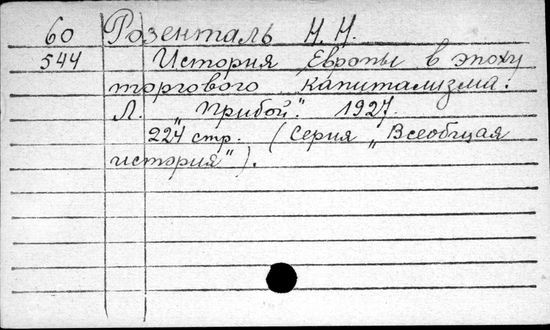 60 Розенталь Н. Н.
544 История Европы в эпоху
торгового капитализма.
Л. „Прибой". 1927.
224 стр. (Серия „Всеобщая
история").